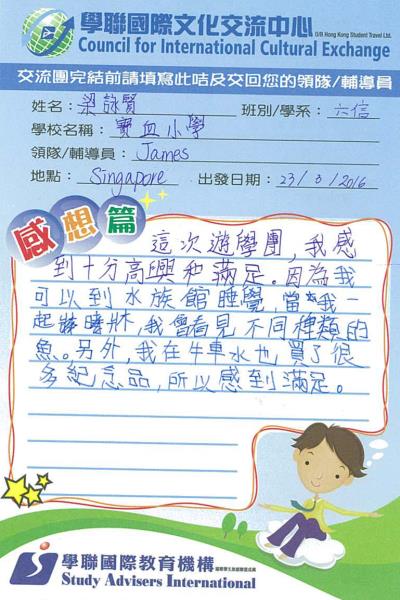 學聯國際文化交流中心 O/B Hong Kong Student Travel Ltd.
Council for International Cultural Exchange
交流團完結前請填寫此咭及交回您的領隊/輔導員
姓名：梁詠賢 班別/學系：六信
學校名稱：寶血小學
領隊/輔導員：James
地點：Singapore 出發日期：23/3/2016
感想篇
這次遊學團，我感
到十分高興和滿足。因為我
可以到水族館睡覺，當我一
起牀，我會看見不同種類的
魚。另外，我在牛車水也買了很
多紀念品，所以感到滿足。
學聯國際教育機構
Study Advisers International